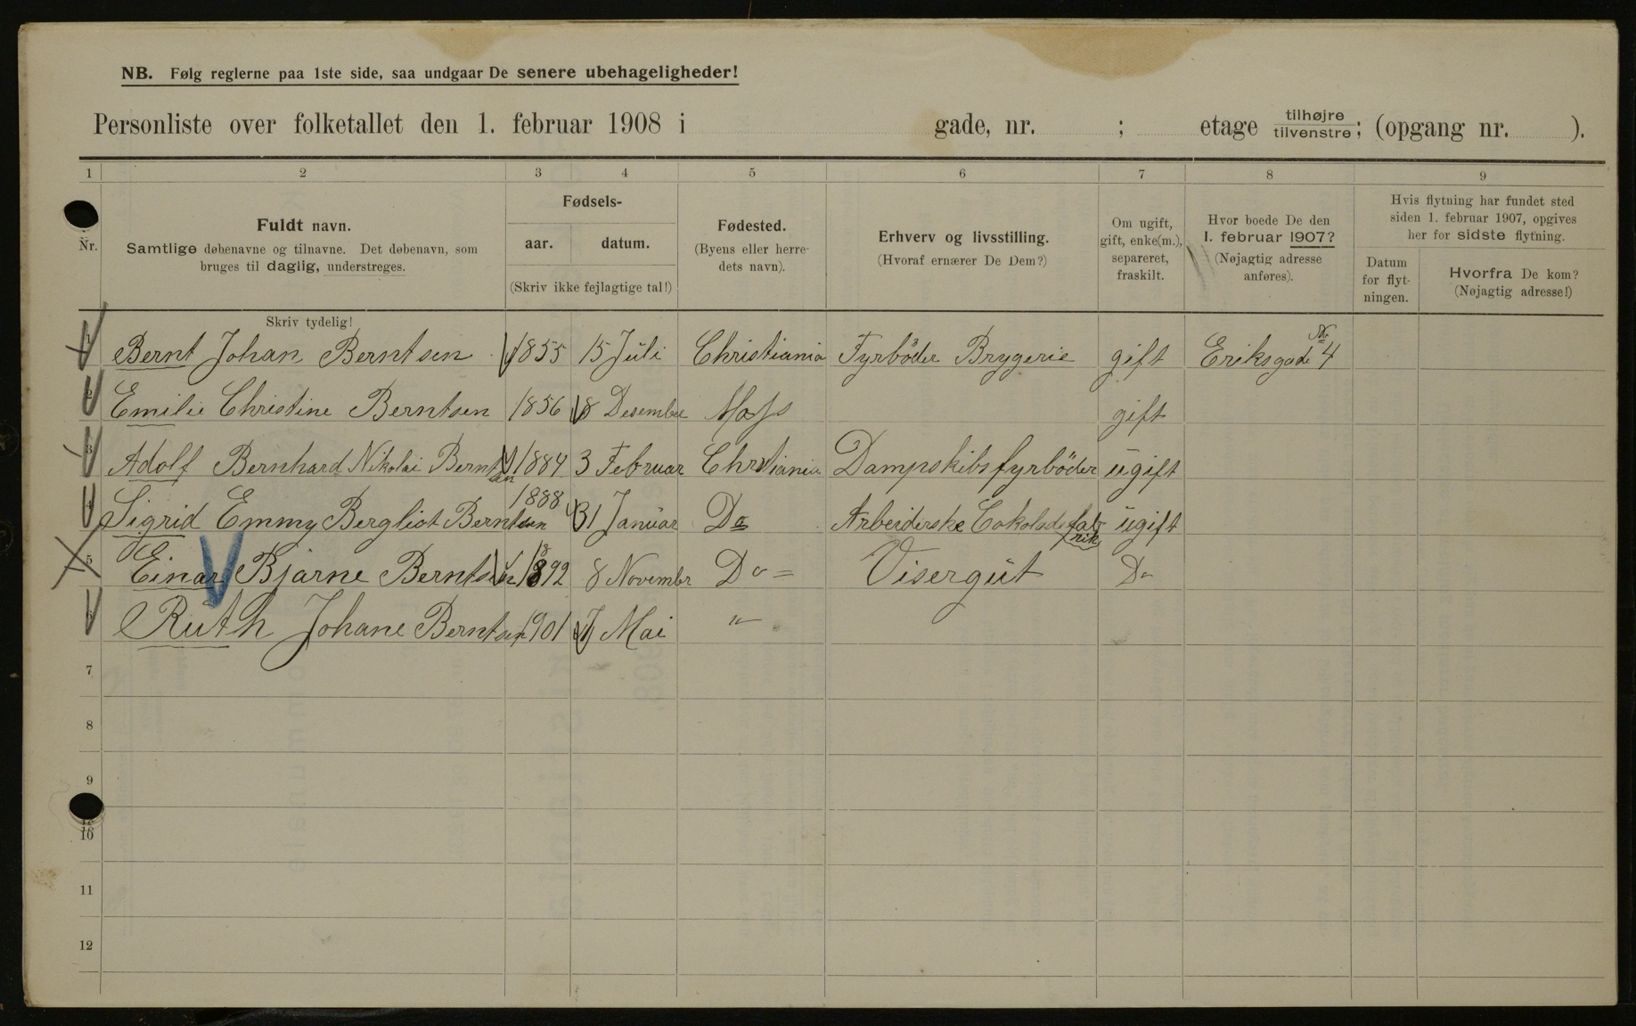 NB. Følg reglerne paa 1ste side, saa undgaar De senere ubehageligheder!
Personliste over folketallet den 1. februar 1908 i gade, nr. ; etage tilhøjre tilvenstre; (opgang nr. ).
1 2 3 4 5 6 7 8 9
Nr.
Fuldt navn.
Samtlige døbenavne og tilnavne. Det døbenavn, som
bruges til daglig, understreges.
Skriv tydelig!
Fødsels-
aar. datum.
(Skriv ikke fejlagtige tal!)
Fødested.
(Byens eller herre-
dets navn).
Erhverv og livsstilling.
(Hvoraf ernærer De Dem?)
Om ugift,
gift, enke(m.),
separeret,
fraskilt.
Hvor boede De den
1. februar 1907?
(Nøjagtig adresse
anføres).
Hvis flytning har fundet sted
siden 1. februar 1907, opgives
her for sidste flytning.
Datum
for flyt-
ningen.
Hvorfra De kom?
(Nøjagtig adresse!)
1 Bernt Johan Berntsen 1855 15 Juli Christiania Fyrböder Brygerie gift Eriksgade No 4
2 Emilie Christine Berntsen 1856 8 Desember Moss gift
3 Adolf Bernhard Nikolai Berntsen 1884 3 Februar Christiania Dampskibsfyrböder ugift
4 Sigrid Emmy Bergliot Berntsen 1888 31 Januar Do Arbeiderske Cokoladefabrik ugift
5 Einar Bjarne Berntsen 1892 8 Novembr Do = Visergut Do
6 Ruth Johane Berntsen 1901 7 Mai "
7
8
9
10
11
12